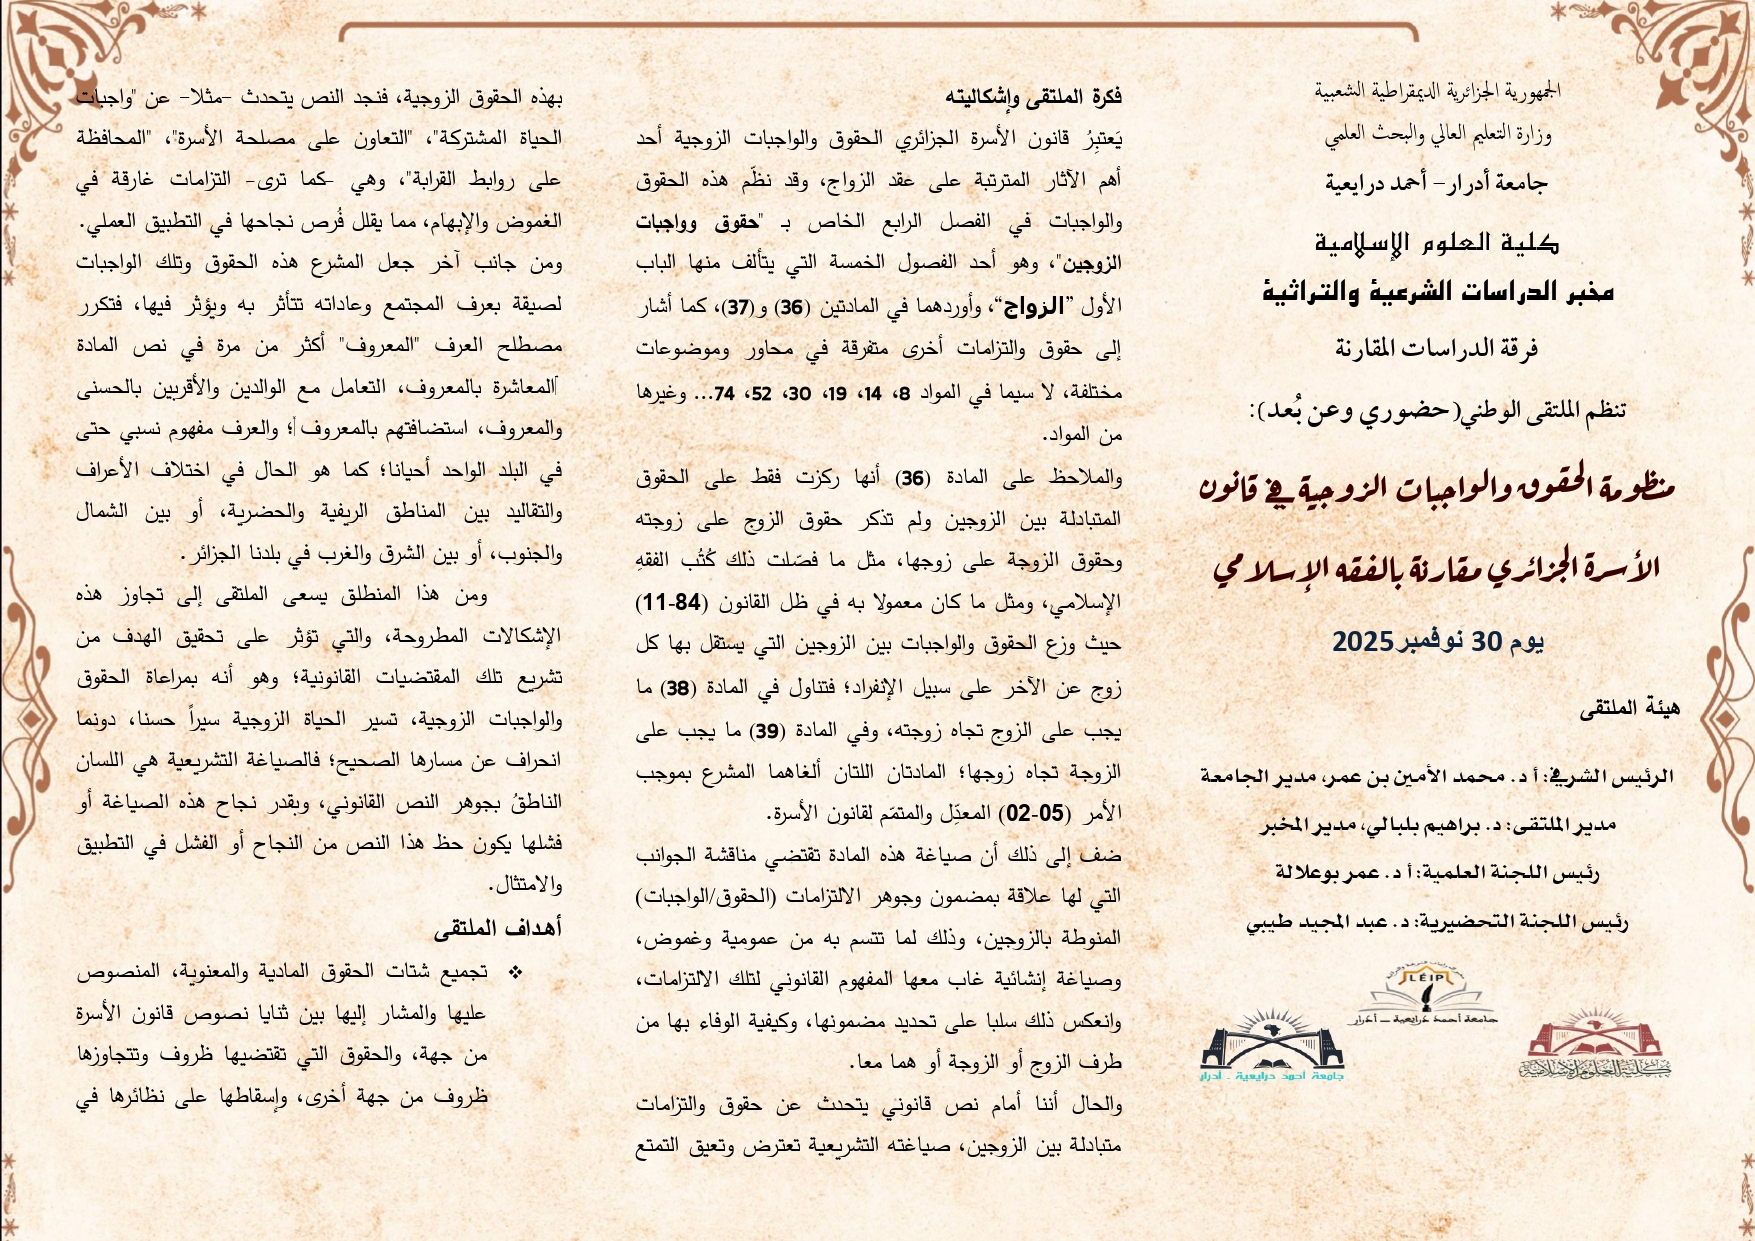 الجمهورية الجزائرية الديمقراطية الشعبية
وزارة التعليم العالي والبحث العلمي
جامعة أدرار– أحمد درايعية
كلية العلوم الإسلامية
مخبر الدراسات الشرعية والتراثية
فرقة الدراسات المقارنة
تنظم الملتقى الوطني(حضوري وعن بُعد):
منظومة الحقوق والواجبات الزوجية في قانون
الأسرة الجزائري مقارنة بالفقه الإسلامي
يوم 30 نوفمبر2025
هيئة الملتقى
الرئيس الشرفي: أ د. محمد الأمين بن عمر، مدير الجامعة
مدير الملتقى: د. براهيم بلبالي، مدير المخبر
رئيس اللجنة العلمية: أ د. عمر بوعلالة
رئيس اللجنة التحضيرية: د. عبد المجيد طيبي
LÉIP
جامعة أحمد درايعية – أدرار
جامعة أحمد درايعية . أدرار
كلية العلوم الإسلامية
فكرة الملتقى وإشكاليته
يَعتبِرُ قانون الأسرة الجزائري الحقوق والواجبات الزوجية أحد
أهم الآثار المترتبة على عقد الزواج، وقد نظّم هذه الحقوق
والواجبات في الفصل الرابع الخاص بـ "حقوق وواجبات
الزوجين"، وهو أحد الفصول الخمسة التي يتألف منها الباب
الأول "الزواج"، وأوردهما في المادتين (36) و(37)، كما أشار
إلى حقوق والتزامات أخرى متفرقة في محاور وموضوعات
مختلفة، لا سيما في المواد 8، 14، 19، 30، 52، 74... وغيرها
من المواد.
والملاحظ على المادة (36) أنها ركزت فقط على الحقوق
المتبادلة بين الزوجين ولم تذكر حقوق الزوج على زوجته
وحقوق الزوجة على زوجها، مثل ما فصّلت ذلك كُتُب الفقهِ
الإسلامي، ومثل ما كان معمولا به في ظل القانون (84-11)
حيث وزع الحقوق والواجبات بين الزوجين التي يستقل بها كل
زوج عن الآخر على سبيل الإنفراد؛ فتناول في المادة (38) ما
يجب على الزوج تجاه زوجته، وفي المادة (39) ما يجب على
الزوجة تجاه زوجها؛ المادتان اللتان ألغاهما المشرع بموجب
الأمر (05-02) المعدِّل والمتمّم لقانون الأسرة.
ضف إلى ذلك أن صياغة هذه المادة تقتضي مناقشة الجوانب
التي لها علاقة بمضمون وجوهر الالتزامات (الحقوق/الواجبات)
المنوطة بالزوجين، وذلك لما تتسم به من عمومية وغموض،
وصياغة إنشائية غاب معها المفهوم القانوني لتلك الالتزامات،
وانعكس ذلك سلبا على تحديد مضمونها، وكيفية الوفاء بها من
طرف الزوج أو الزوجة أو هما معا.
والحال أننا أمام نص قانوني يتحدث عن حقوق والتزامات
متبادلة بين الزوجين، صياغته التشريعية تعترض وتعيق التمتع
بهذه الحقوق الزوجية، فنجد النص يتحدث –مثلا– عن "واجبات
الحياة المشتركة"، "التعاون على مصلحة الأسرة"، "المحافظة
على روابط القرابة"، وهي –كما ترى– التزامات غارقة في
الغموض والإبهام، مما يقلل فُرص نجاحها في التطبيق العملي.
ومن جانب آخر جعل المشرع هذه الحقوق وتلك الواجبات
لصيقة بعرف المجتمع وعاداته تتأثر به ويؤثر فيها، فتكرر
مصطلح العرف "المعروف" أكثر من مرة في نص المادة
[المعاشرة بالمعروف، التعامل مع الوالدين والأقربين بالحسنى
والمعروف، استضافتهم بالمعروف]؛ والعرف مفهوم نسبي حتى
في البلد الواحد أحيانا؛ كما هو الحال في اختلاف الأعراف
والتقاليد بين المناطق الريفية والحضرية، أو بين الشمال
والجنوب، أو بين الشرق والغرب في بلدنا الجزائر.
ومن هذا المنطلق يسعى الملتقى إلى تجاوز هذه
الإشكالات المطروحة، والتي تؤثر على تحقيق الهدف من
تشريع تلك المقتضيات القانونية؛ وهو أنه بمراعاة الحقوق
والواجبات الزوجية، تسير الحياة الزوجية سيراً حسنا، دونما
انحراف عن مسارها الصحيح؛ فالصياغة التشريعية هي اللسان
الناطقُ بجوهر النص القانوني، وبقدر نجاح هذه الصياغة أو
فشلها يكون حظ هذا النص من النجاح أو الفشل في التطبيق
والامتثال.
أهداف الملتقى
❖ تجميع شتات الحقوق المادية والمعنوية، المنصوص
عليها والمشار إليها بين ثنايا نصوص قانون الأسرة
من جهة، والحقوق التي تقتضيها ظروف وتتجاوزها
ظروف من جهة أخرى، وإسقاطها على نظائرها في